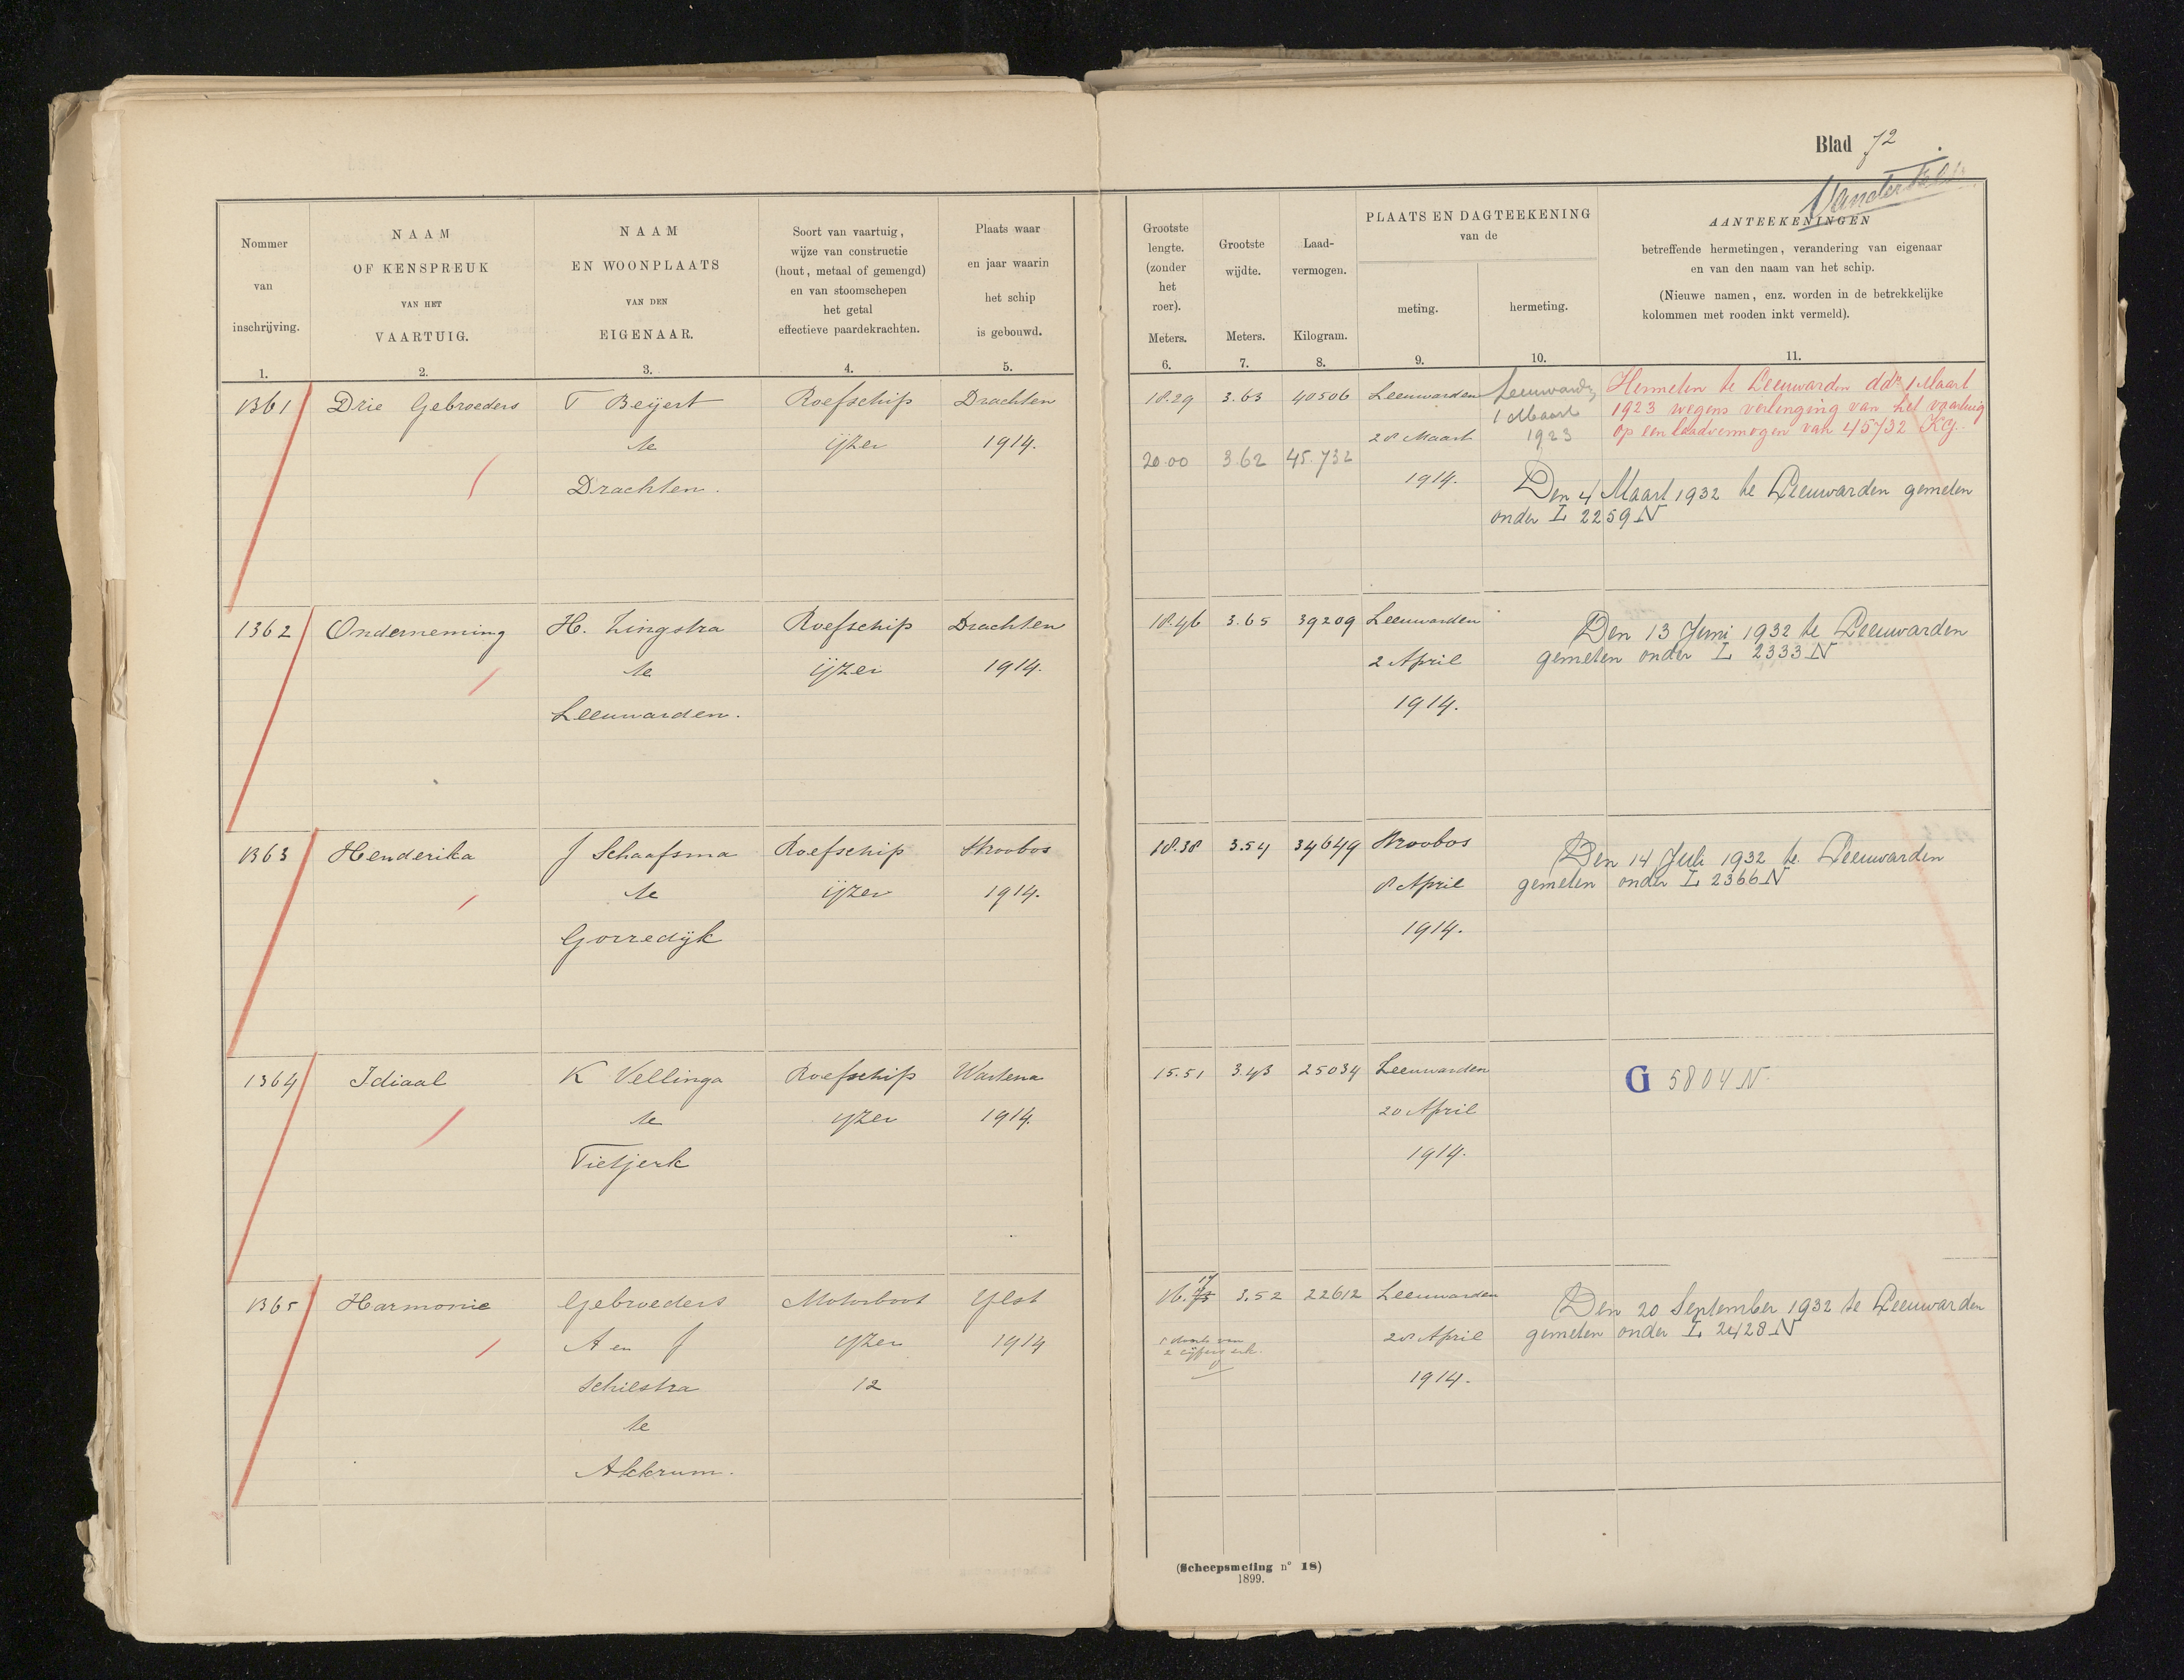 Blad 72
Nommer
van
inschrijving.
1.
NAAM
OF KENSPREUK
VAN HET
VAARTUIG.
2.
NAAM
EN WOONPLAATS
VAN DEN
EIGENAAR.
3.
Soort van vaartuig,
wijze van constructie
(hout, metaal of gemengd)
en van stoomschepen
het getal
effectieve paardekrachten.
4.
Plaats waar
en jaar waarin
het schip
is gebouwd.
5.
Grootste
lengte.
(zonder
het
roer).
Meters.
6.
Grootste
wijdte.
Meters.
7.
Laad-
vermogen.
Kilogram.
8.
PLAATS EN DAGTEEKENING
van de
meting.
9.
hermeting.
10.
AANTEEKENINGEN
betreffende hermetingen, verandering van eigenaar
en van den naam van het schip.
(Nieuwe namen, enz. worden in de betrekkelijke
kolommen met rooden inkt vermeld).
11.
1361
Drie Gebroeders
T Beijert
te
Drachten.
Roefschip
ijzer
Drachten
1914.
18.29 3.63 40506
20.00 3.62 45.732
Leeuwarden
28 Maart
1914.
Leeuward
1 Maart
1923
Hermeten te Leeuwarden ddn 1 Maart
1923 wegens verlenging van het vaartuig
op een laadvermogen van 45732 KG.
Den 4 Maart 1932 te Leeuwarden gemeten
onder L 2259 N
1362
Onderneming
H. Zingstra
te
Leeuwarden.
Roefschip
ijzer
Drachten
1914.
18.46 3.65 39209
Leeuwarden
2 April
1914.
Den 13 Juni 1932 te Leeuwarden
gemeten onder L 2333 N
1363
Henderika
J Schaafsma
te
Gorredijk
Roefschip
ijzer
Stroobos
1914.
18.38 3.54 34649
Stroobos
8 April
1914.
Den 14 Juli 1932 te Leeuwarden
gemeten onder L 2366 N
1364
Idiaal
K Vellinga
te
Tietjerk
Roefschip
yzer
Wartena
1914.
15.51 3.43 25034
Leeuwarden
20 April
1914.
G 5804 N.
1365
Harmonie
Gebroeders
A en J
Schilstra
te
Akkrum.
Motorboot
yzer
12
Ylst
1914
16. 17 3.52 22612
2 cijfers
Leeuwarden
28 April
1914.
Den 20 September 1932 te Leeuwarden
gemeten onder L 2428 N
(Scheepsmeting n° 18)
1899.